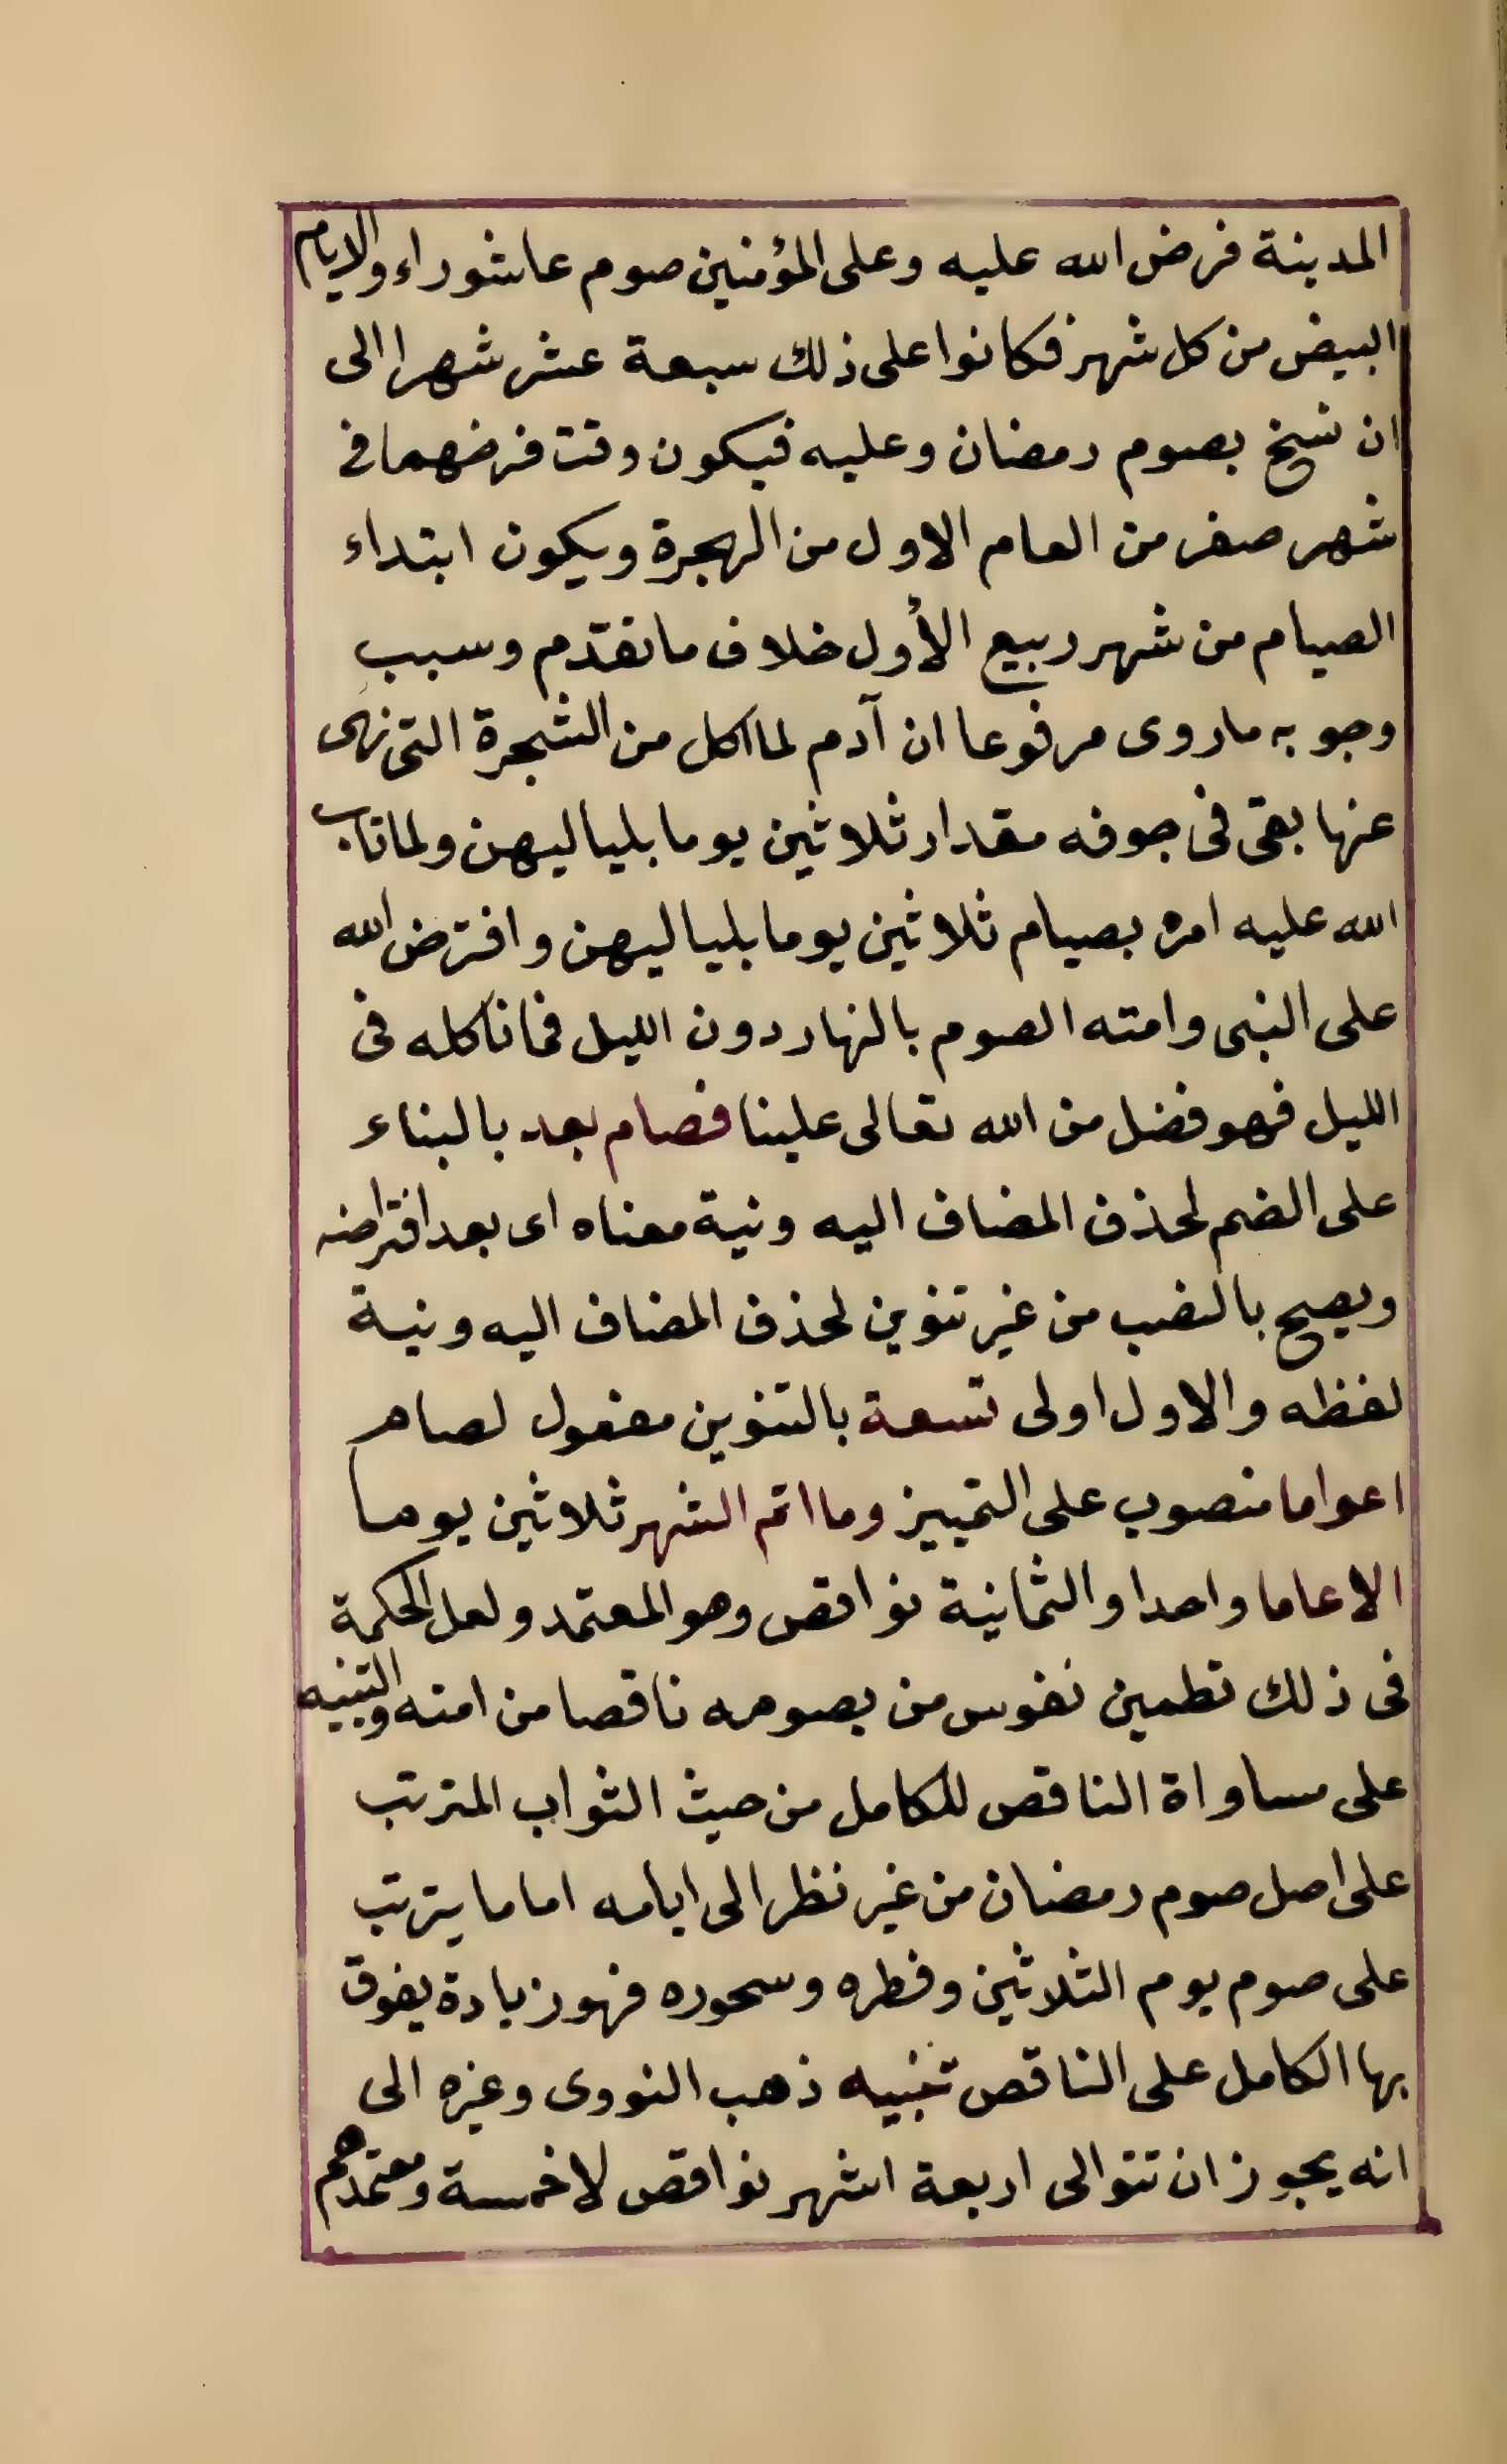 المدينة فرض الله عليه وعلى المؤمنين صوم عاشوراء والايام
البيض من كل شهر فكانوا على ذلك سبعة عشر شهرا الى
ان نسخ بصوم رمضان وعليه فيكون وقت فرضهما في
شهر صفر من العام الاول من الهجرة ويكون ابتداء
الصيام من شهر ربيع الأول خلاف ما تقدم وسبب
وجوبه ما روى مرفوعا ان آدم لما اكل من الشجرة التى نهى
عنها بقى فى جوفه مقدار ثلاثين يوما بلياليهن ولما تاب
الله عليه امره بصيام ثلاثين يوما بلياليهن وافترض الله
على النبى وامته الصوم بالنهار دون الليل فما ناكله فى
الليل فهو فضل من الله تعالى علينا فصام بعد بالبناء
على الضم لحذف المضاف اليه ونية معناه اى بعد افتراضه
ويصح بالنصب من غير تنوين لحذف المضاف اليه ونية
لفظه والاول اولى تسعة بالتنوين مفعول لصام
اعواما منصوب على التمييز وما اتم الشهر ثلاثين يوما
الا عاما واحدا والثمانية نواقص وهو المعتمد ولعل الحكمة
فى ذلك تطمين نفوس من يصومه ناقصا من امته والتنبيه
على مساواة الناقص للكامل من حيث الثواب المترتب
على اصل صوم رمضان من غير نظر الى ايامه اما ما يترتب
على صوم يوم الثلاثين وفطره وسحوره فهو زيادة يفوق
بها الكامل على الناقص تنبيه ذهب النووى وغيره الى
انه يجوز ان تتوالى اربعة اشهر نواقص لا خمسة ومعتمدهم